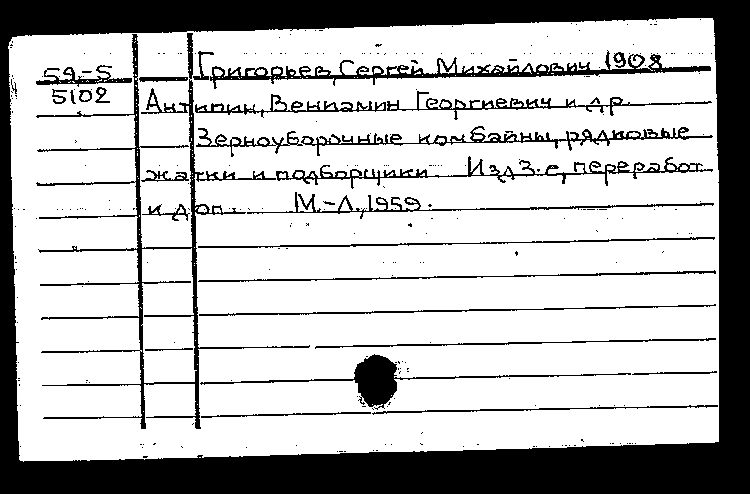 59-5 Григорьев, Сергей Михайлович 1908
5102 Антипин, Вениамин Георгиевич и др.
Зерноуборочные комбайны, рядковые
жатки и подборщики. Изд 3-е, переработ
и доп. М.-Л., 1959.